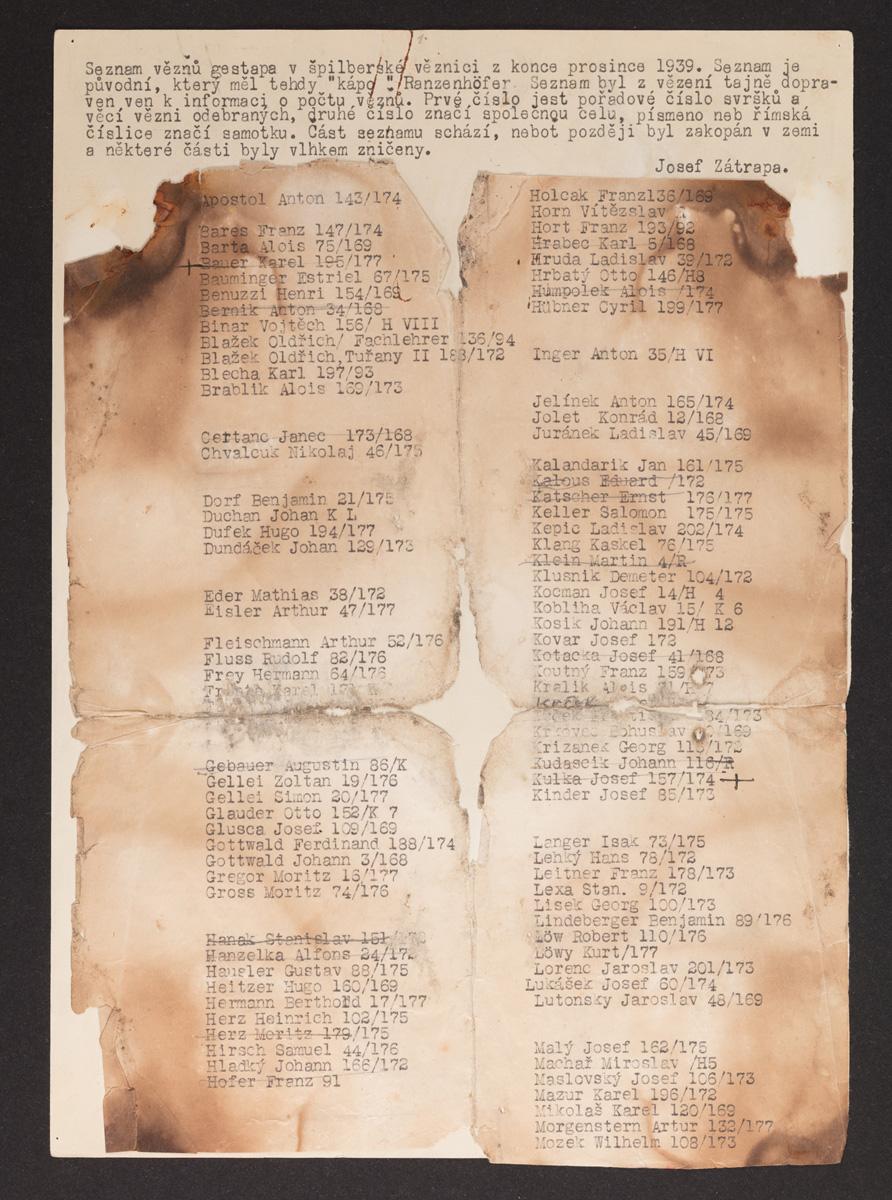 Seznam věznů gestapa v špilberské věznici z konce prosince 1939. Seznam je
původní, který měl tehdy "kápo" Ranzenhöfer Seznam byl z vězení tajně dopra-
ven ven k informaci o počtu věznů. Prvé číslo jest pořadové číslo svršků a
věcí vězni odebraných, druhé číslo značí společnou celu, písmeno neb římská
číslice značí samotku. Část seznamu schází, neboť později byl zakopán v zemi
a některé části byly vlhkem zničeny.
Josef Zátrapa.
Apostol Anton 143/174
Bares Franz 147/174
Barta Alois 75/169
Bauer Karel 195/177
Bauminger Estriel 67/175
Benuzzi Henri 154/169
Bernik Anton 34/168
Binar Vojtěch 156/ H VIII
Blažek Oldřich/ Fachlehrer 136/94
Blažek Oldřich,Tuřany II 188/172
Blecha Karl 197/93
Brablik Alois 169/173
Certanc Janec 173/168
Chvalcuk Nikolaj 46/175
Dorf Benjamin 21/175
Duchan Johan K L
Dufek Hugo 194/177
Dundáček Johan 129/173
Eder Mathias 38/172
Eisler Arthur 47/177
Fleischmann Arthur 52/176
Fluss Rudolf 82/176
Frey Hermann 64/176
Karel
Gebauer Augustin 86/K
Gellei Zoltan 19/176
Gellei Simon 20/177
Glauder Otto 152/K 7
Glusca Josef 109/169
Gottwald Ferdinand 188/174
Gottwald Johann 3/168
Gregor Moritz 16/177
Gross Moritz 74/176
Hanak Stanislav 151/172
Hanzelka Alfons 24/172
Haugler Gustav 88/175
Heitzer Hugo 160/169
Hermann Berthold 17/177
Herz Heinrich 102/175
Herz Moritz 179/175
Hirsch Samuel 44/176
Hladký Johann 166/172
Hofer Franz 91
Holcak Franz136/169
Horn Vítězslav
Hort Franz 193/92
Hrabec Karl 5/168
Hruda Ladislav 39/172
Hrbatý Otto 146/H8
Humpolek Alois /174
Hübner Cyril 199/177
Inger Anton 35/H VI
Jelínek Anton 165/174
Jolet Konrád 12/168
Juránek Ladislav 45/169
Kalandarik Jan 161/175
Kalous Eduard /172
Katscher Ernst 176/177
Keller Salomon 175/175
Kepic Ladislav 202/174
Klang Kaskel 76/175
Klein Martin 4/R
Klusnik Demeter 104/172
Kocman Josef 14/H 4
Kobliha Václav 15/ K 6
Kosik Johann 191/H 12
Kovar Josef 172
Kotacka Josef 41/168
Koutný Franz 159 73
Kralik Alois
84/173
Bohuslav /169
Krizanek Georg 115/172
Kudascik Johann 118/R
Kulka Josef 157/174
Kinder Josef 85/173
Langer Isak 73/175
Lehký Hans 78/172
Leitner Franz 178/173
Lexa Stan. 9/172
Lisek Georg 100/173
Lindeberger Benjamin 89/176
Löw Robert 110/176
Löwy Kurt/177
Lorenc Jaroslav 201/173
Lukášek Josef 60/174
Lutonsky Jaroslav 48/169
Malý Josef 162/175
Machař Miroslav /H5
Maslovský Josef 106/173
Mazur Karel 196/172
Mikolaš Karel 120/169
Morgenstern Artur 132/177
Mozek Wilhelm 108/173